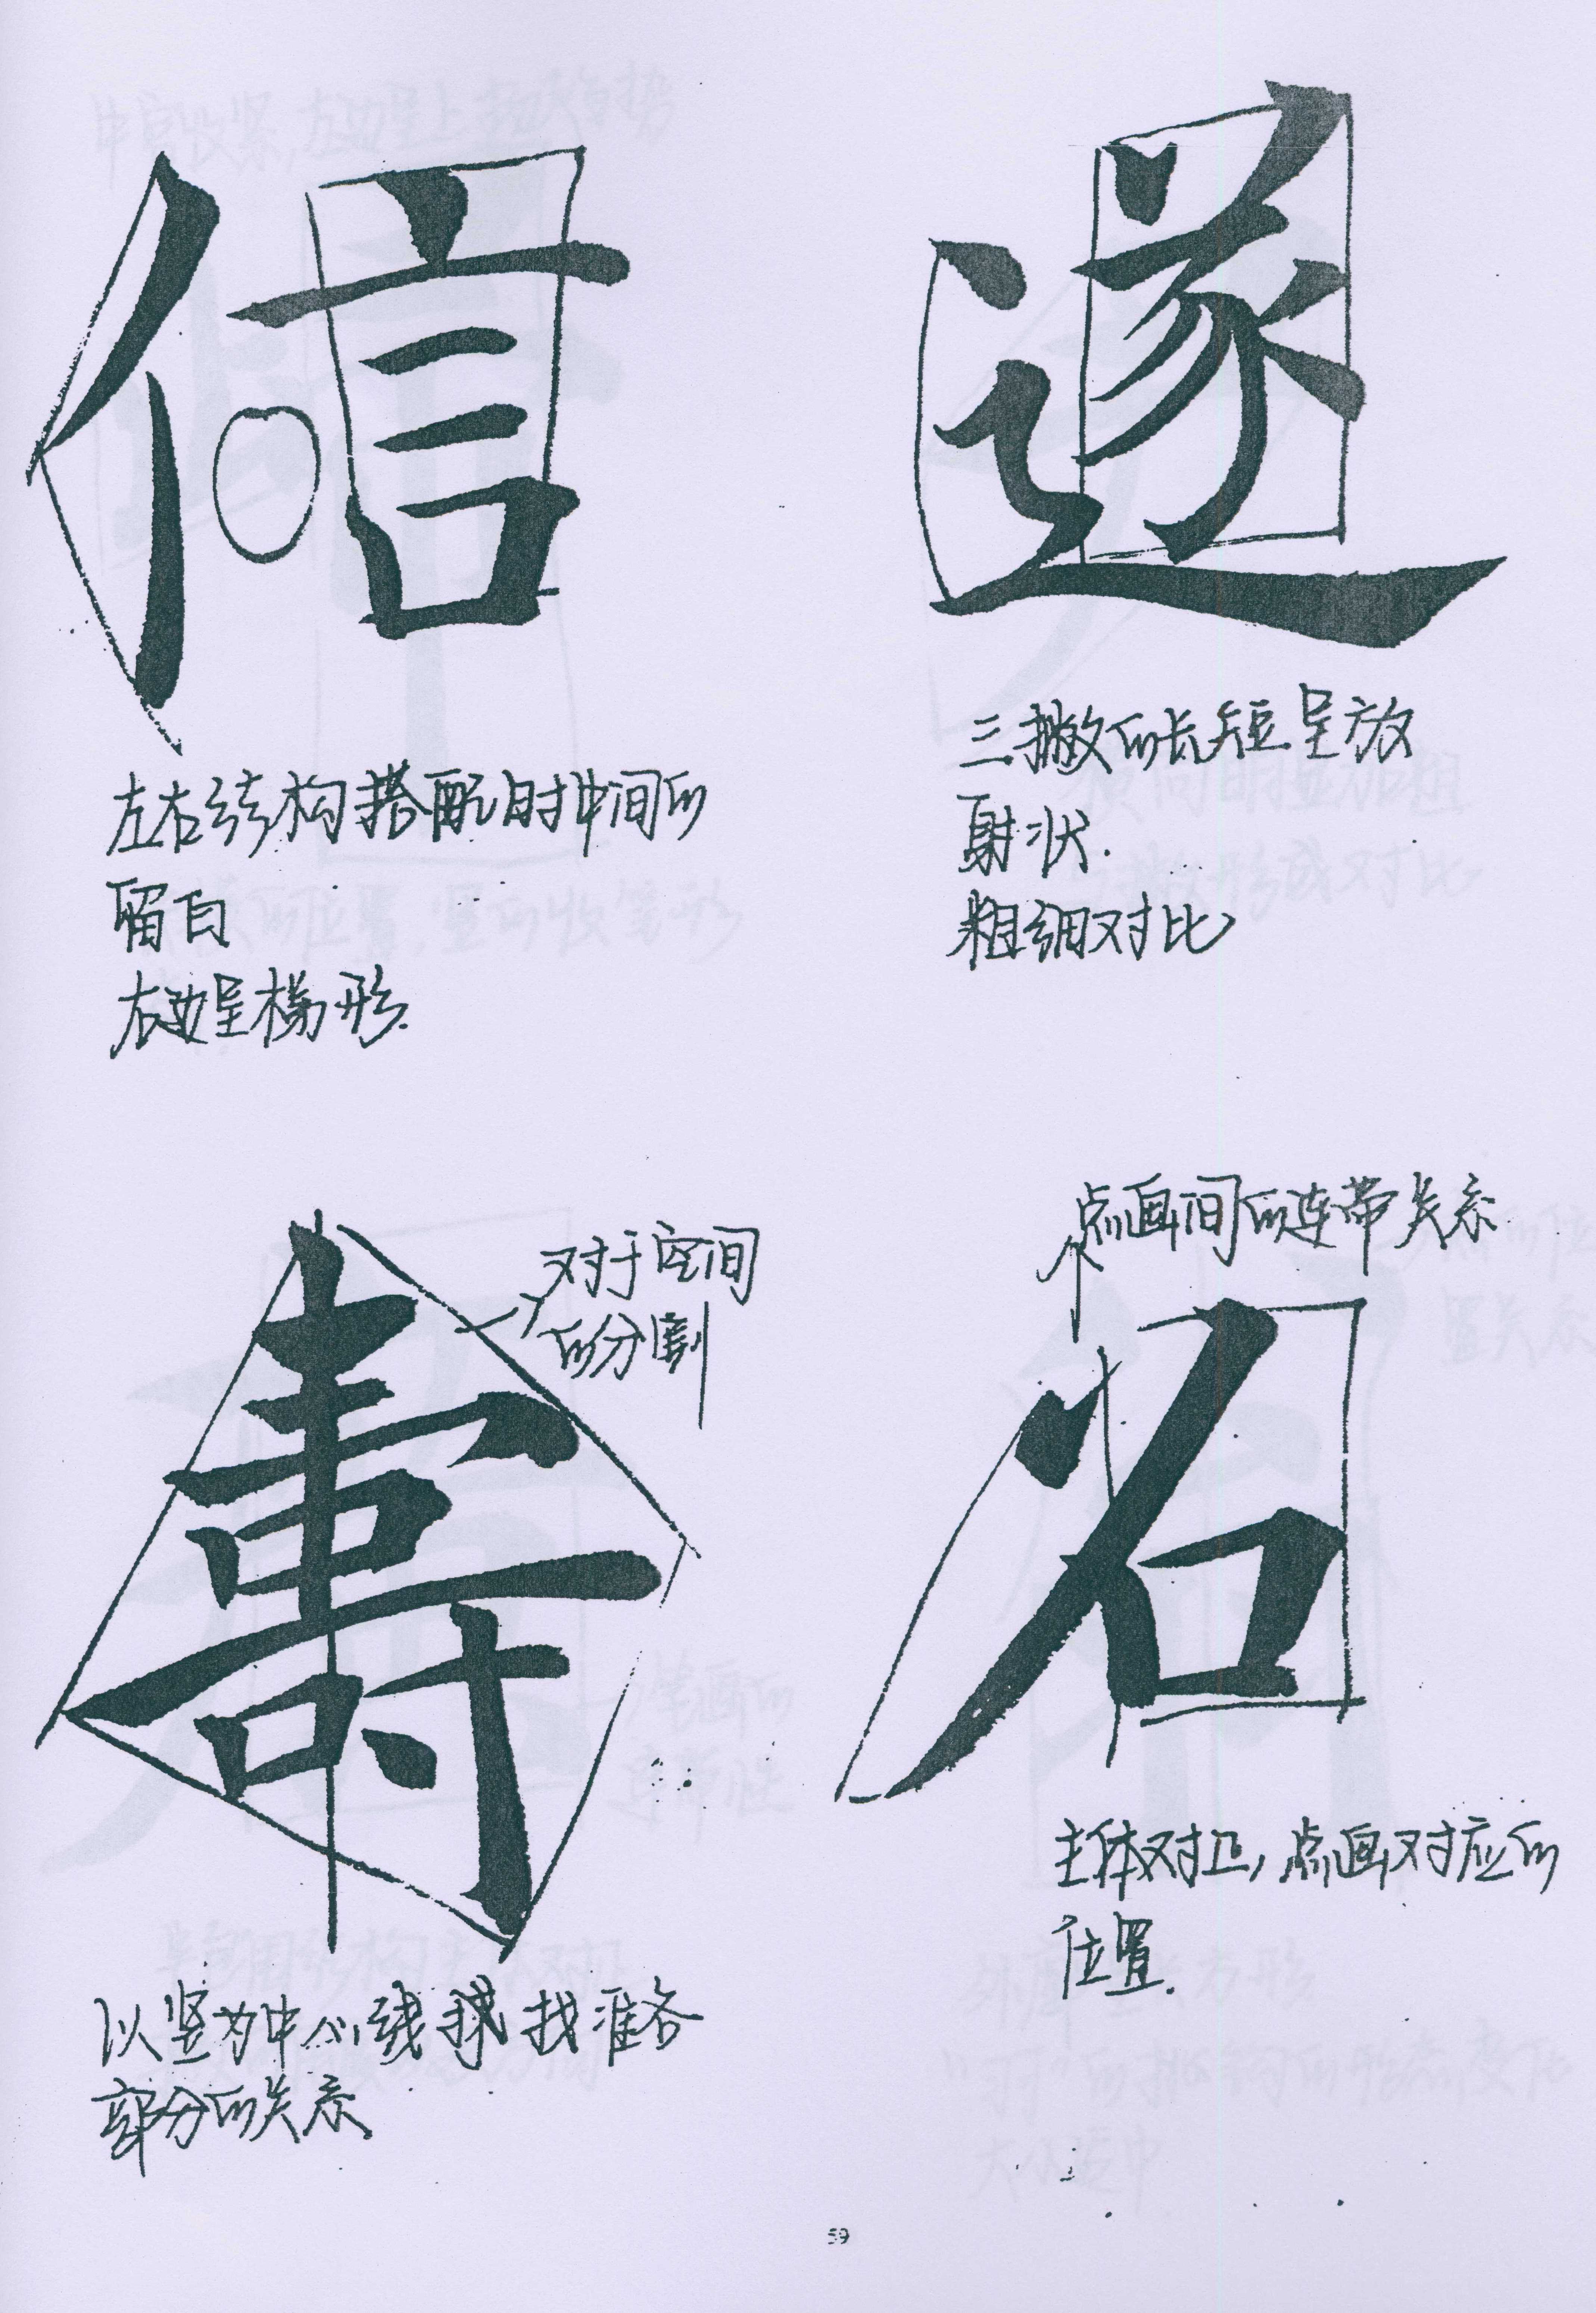 信
左右结构搭配时中间的
留白
右边呈梯形.
遂
三撇的长短呈放
射状.
粗细对比
壽
对于空间
的分割
以竖为中心线 找准各
部分的关系
点画间的连带关系
名
主体对正,点画对应的
位置.
59